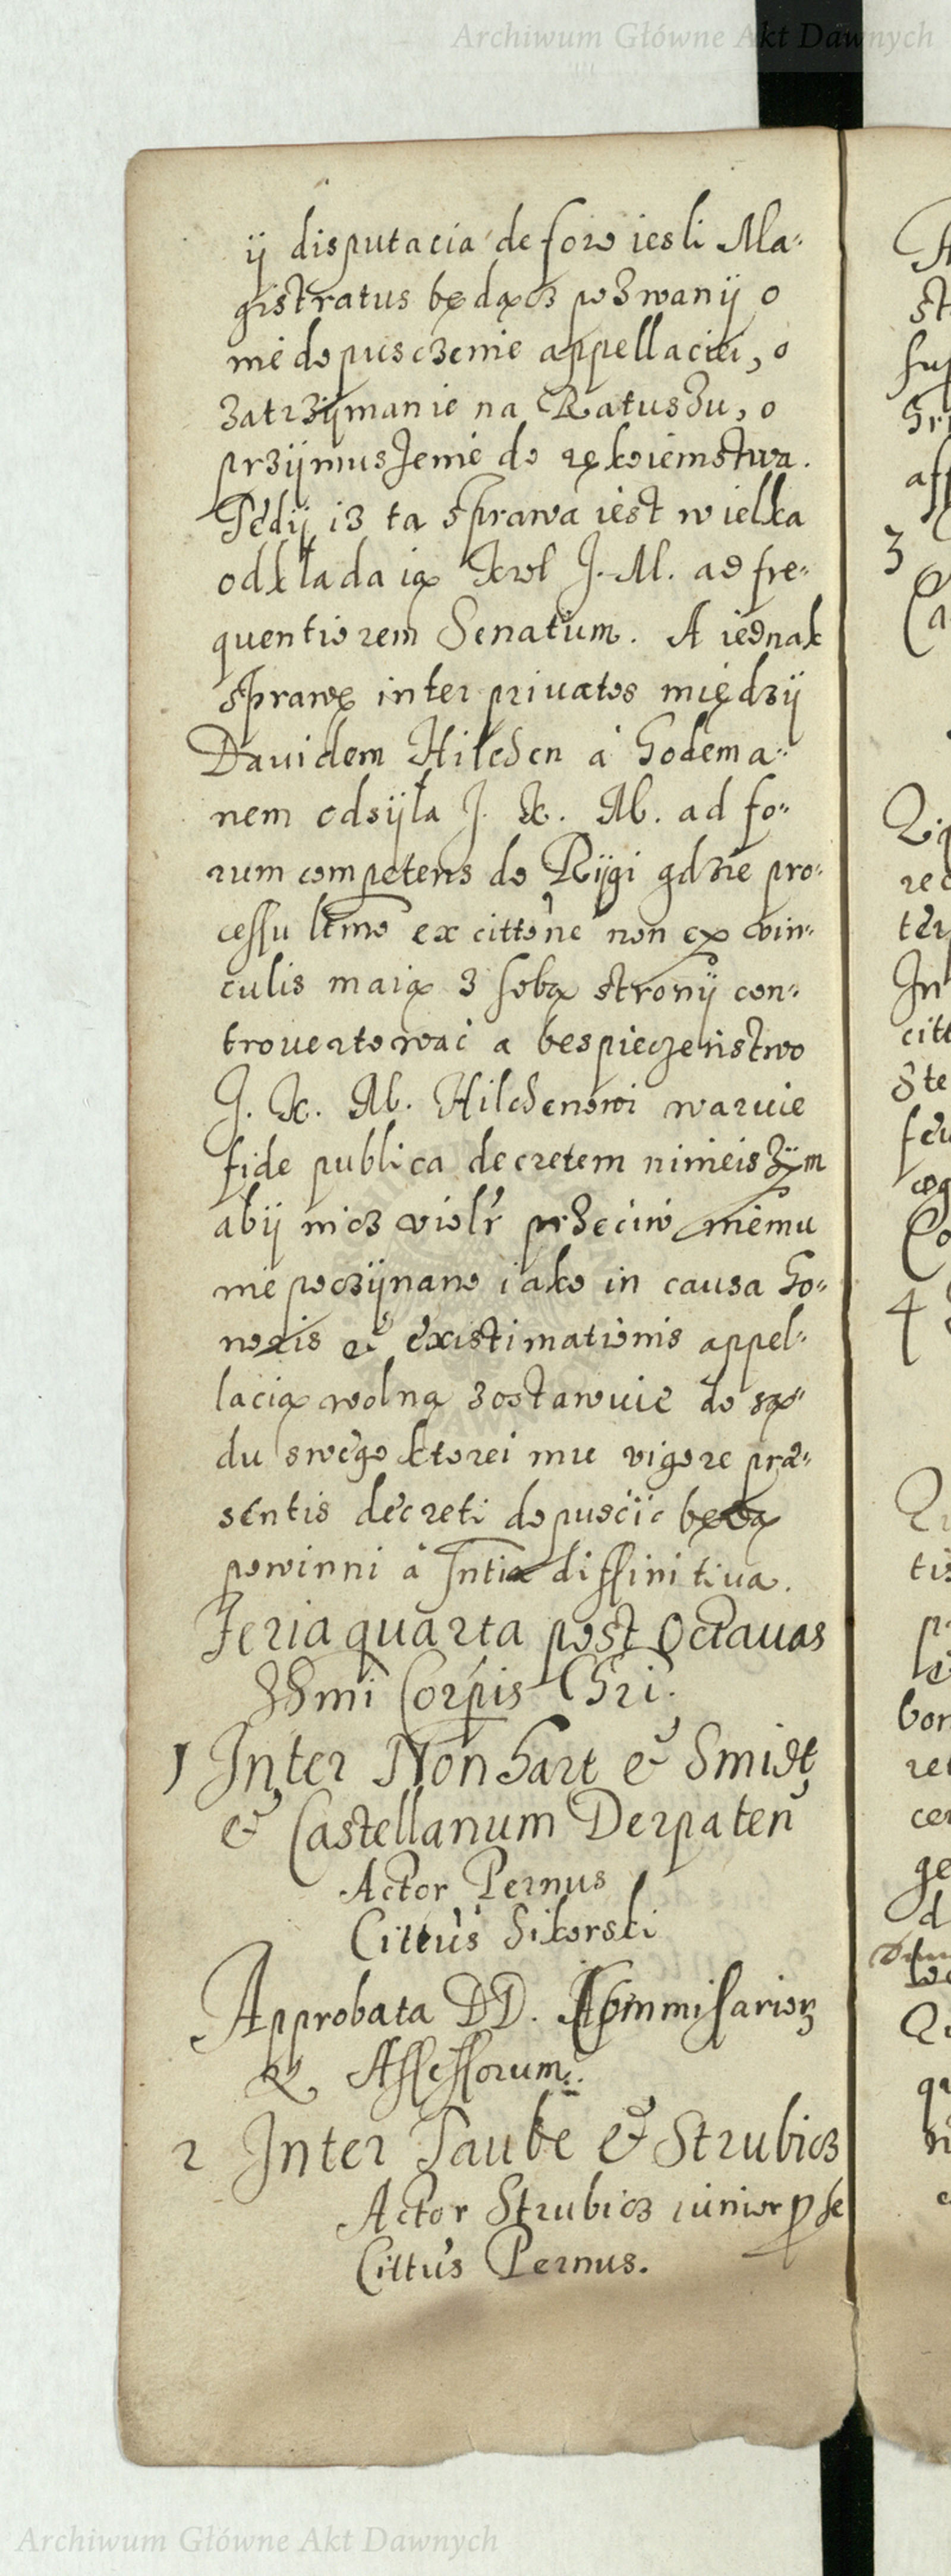 Archiwum Główne Akt Dawnych
ij disputacia de foro iesli Ma-
gistratus będącz pozwanij o
niedopusczenie appellaciei, o
zatrzijmanie na Ratuszu, o
przijmuszenie do rękoiemstwa.
Tedij iz ta sprawa iest wielka
odkłada ią Krol J. M. ad fre-
quentiorem Senatum. A iednak
sprawę inter priuatos międzij
Dauidem Hilchen à Godema-
nem odsijła J. K. M. ad fo-
rum competens do Rijgi gdzie pro-
cessu ltmo ex cittone non ex vin-
culis maią z sobą stronij con-
trouertować a bespieczeństwo
J. K. M. Hilchenowi waruie
fide publica decretem ninieiszijm
abij nicz violr przeciw niemu
nie poczijnano iako in causa ho-
noris et existimationis appel-
lacią wolną zostawuie do są-
du swego ktorei mu vigore præ-
sentis decreti dopuscić będą
powinni à sntia diffinitiua.
Feria quarta post Octauas
SSmi Corpis Chri.
1 Inter Nonhart & Smidt
& Castellanum Derpaten
Actor Pernus
Cittus Sikorski
Approbata DD. Commisariorz
& Assessorum.
2 Inter Taube & Strubicz
Actor Strubicz iunior p se
Cittus Pernus.
3
4
Archiwum Główne Akt Dawnych